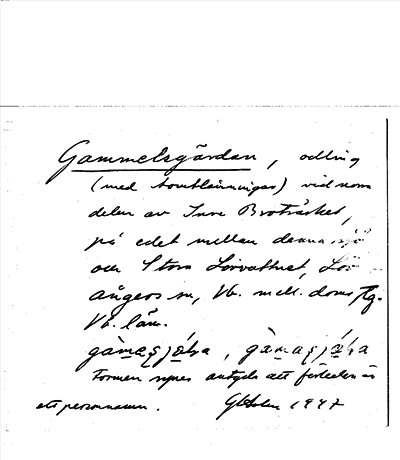 Gammelsgårdan, odling
(med tomtlämningar) vid norra
delen av Inre Broträsket,
på edet mellan denna sjö
och Stora Lövvattnet, Löv-
ångers sn, Vb. mell. doms.
Vb. län.
Formen synes antyda att förleden är
ett personnamn. 1947